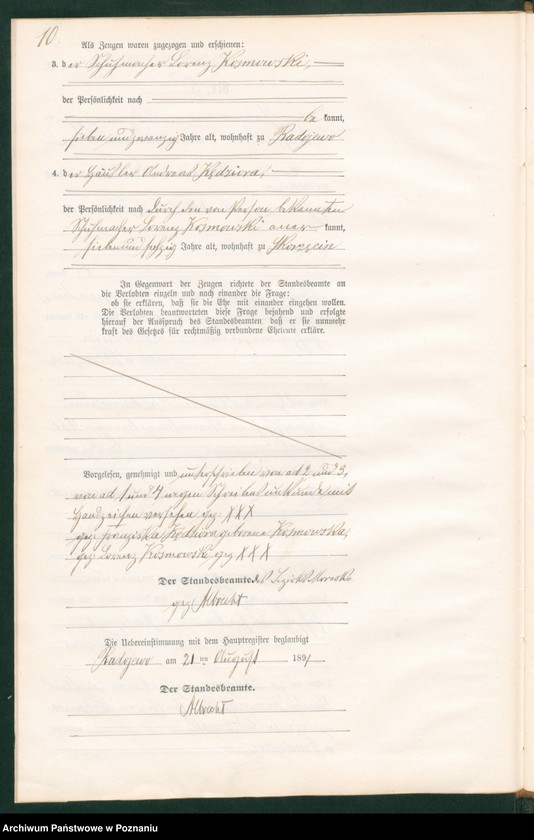 10.
Als Zeugen waren zugezogen und erschienen:
3. der Schuhmacher Lorenz Kosmowski,
der Persönlichkeit nach
be kannt,
sieben und zwanzig Jahre alt, wohnhaft zu Radojewo
4. der Häusler Andreas Kędziora,
der Persönlichkeit nach durch den von Person bekannten
Schuhmacher Lorenz Kosmowski aner kannt,
sieben und Jahre alt, wohnhaft zu
In Gegenwart der Zeugen richtete der Standesbeamte an
die Verlobten einzeln und nach einander die Frage:
ob sie erklären, daß sie die Ehe mit einander eingehen wollen.
Die Verlobten beantworteten diese Frage bejahend und erfolgte
hierauf der Ausspruch des Standesbeamten, daß er sie nunmehr
kraft des Gesetzes für rechtmäßig verbundene Eheleute erkläre.
Vorgelesen, genehmigt und unterschrieben von ad 2 und 3,
von ad 1 und 4 wegen Schreibensunkunde mit
Handzeichen versehen gez. XXX
gez. Franziska Kędziora geborene Kosmowska,
gez. Lorenz Kosmowski gez. XXX
Der Standesbeamte. des Bezirks Morasko
gez. Albrecht
Die Uebereinstimmung mit dem Hauptregister beglaubigt
Radojewo am 21 ten August 1891
Der Standesbeamte.
Albrecht
Archiwum Państwowe w Poznaniu